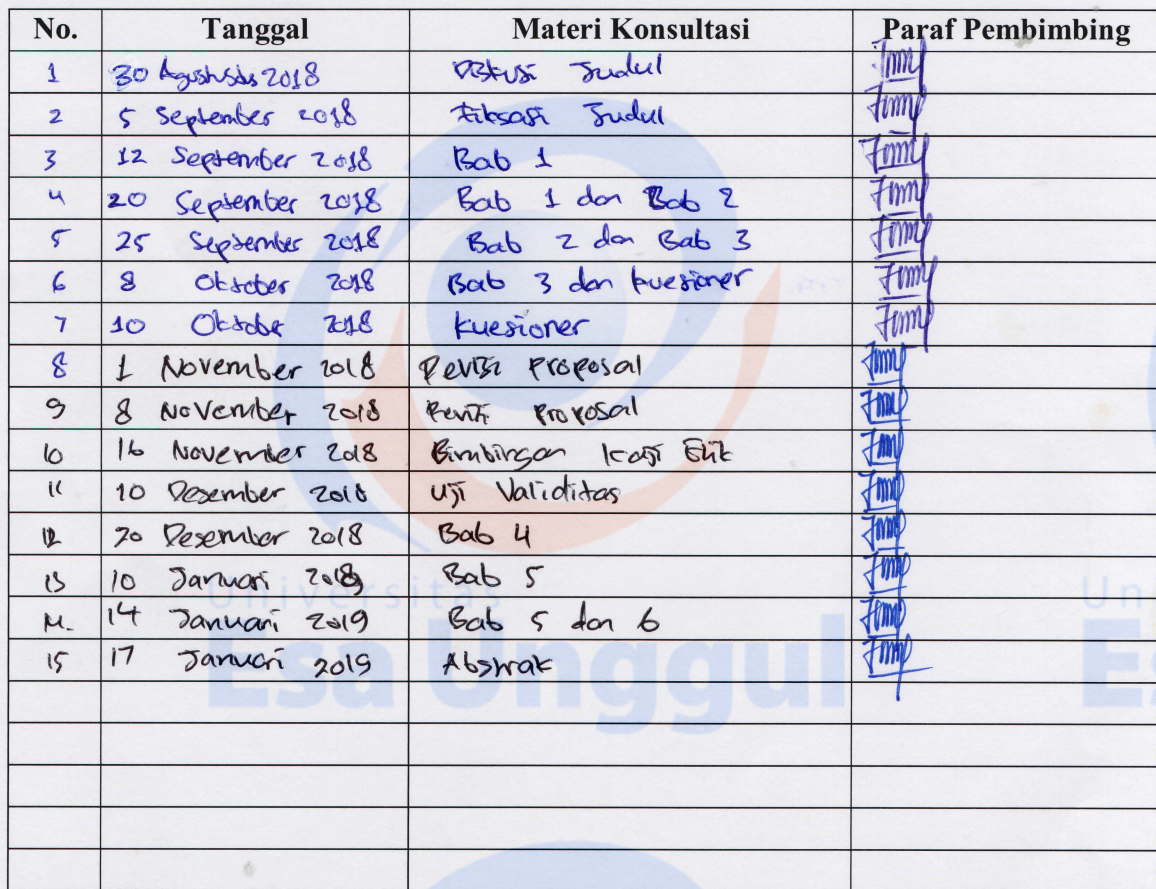 No. Tanggal Materi Konsultasi Paraf Pembimbing
1 30 Agustusts 2018 Diskusi Judul
2 5 September 2018 Fiksasi Judul
3 12 September 2018 Bab 1
4 20 September 2018 Bab 1 dan Bab 2
5 25 September 2018 Bab 2 dan Bab 3
6 8 Oktober 2018 Bab 3 dan kuesioner
7 10 Oktober 2018 kuesioner
8 1 November 2018 Revisi Proposal
9 8 November 2018 Revisi Proposal
10 16 November 2018 Bimbingan Kaji Etik
11 10 Desember 2018 Uji Validitas
12 20 Desember 2018 Bab 4
13 10 Januari 2019 Bab 5
14. 14 Januari 2019 Bab 5 dan 6
15 17 Januari 2019 Abstrak
Universitas
Esa Unggul
Un
Es